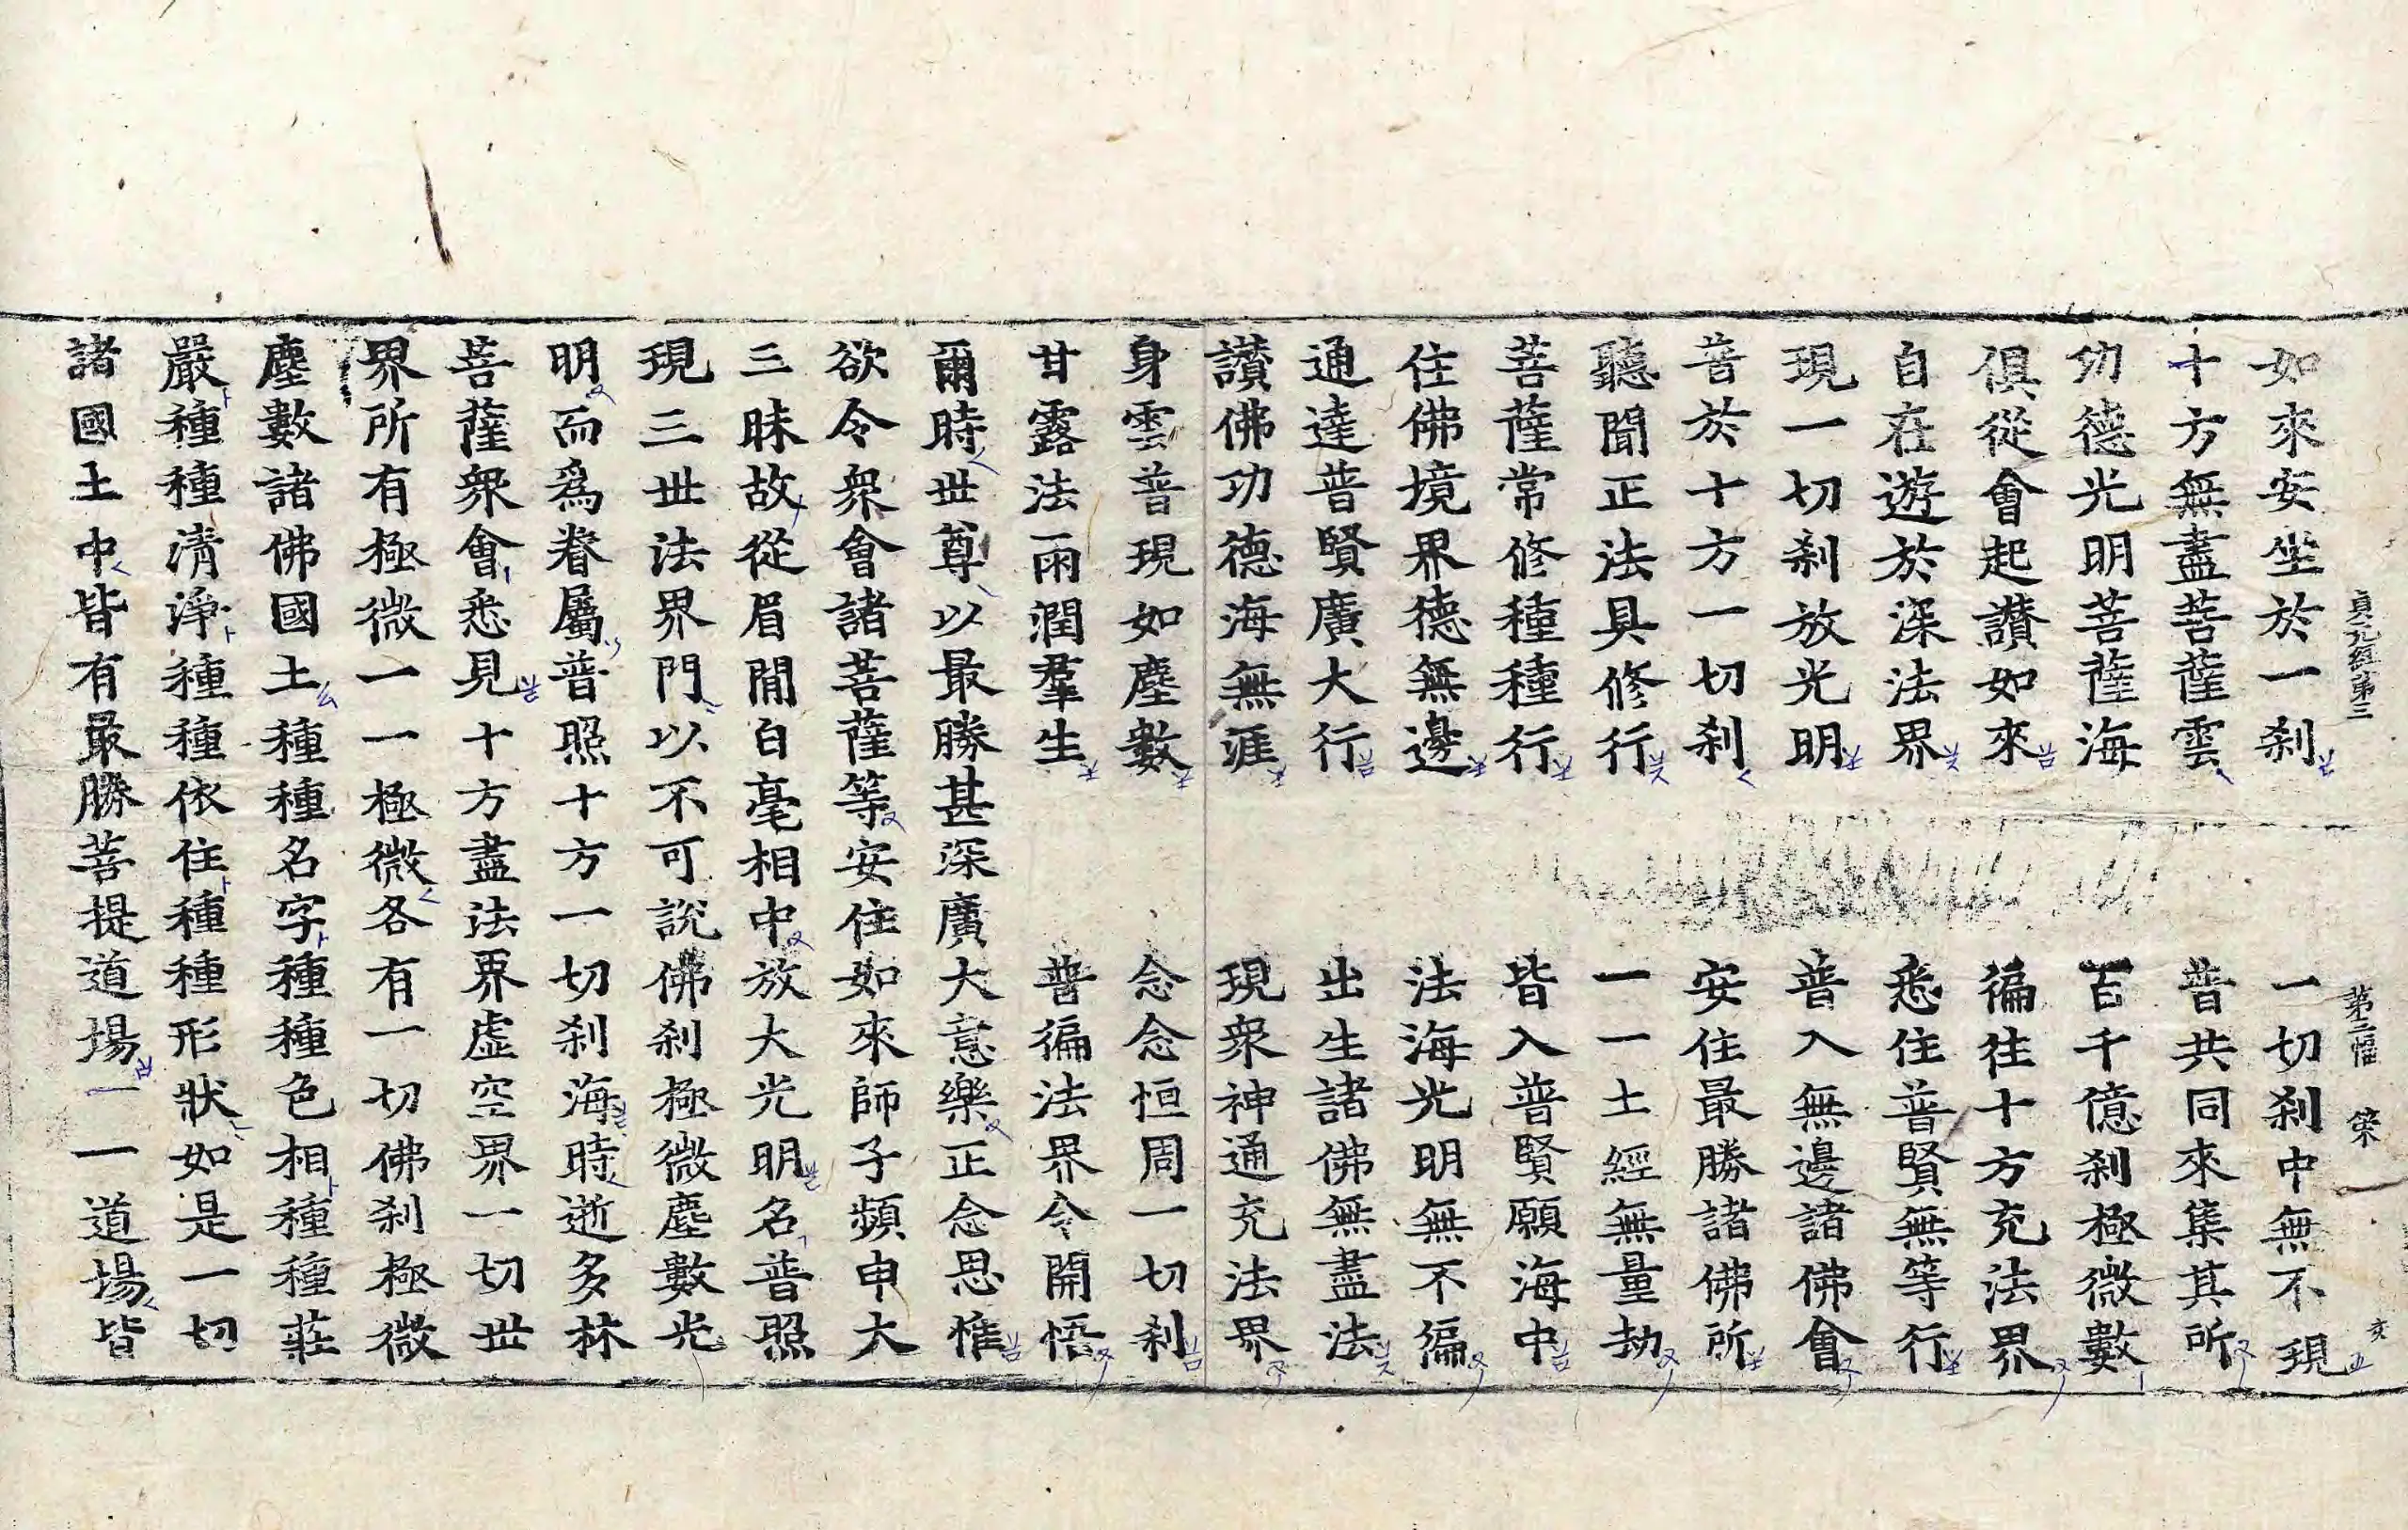 貞元經第三 第二幅 築
如來安坐於一刹 一切刹中無不現
十方無盡菩薩雲 普共同來集其所
功德光明菩薩海 百千億刹極微數
俱從會起讃如來 徧往十方充法界
自在遊於深法界 悉住普賢無等行
現一切刹放光明 普入無邊諸佛會
普於十方一切刹 安住最勝諸佛所
聽聞正法具修行 一一土經無量劫
菩薩常修種種行 皆入普賢願海中
住佛境界德無邊 法海光明無不徧
通達普賢廣大行 出生諸佛無盡法
讃佛功德海無涯 現衆神通充法界
身雲普現如塵數 念念恒周一切刹
甘露法雨潤羣生 普徧法界令開悟
爾時世尊以最勝甚深廣大意樂正念思惟
欲令衆會諸菩薩等安住如來師子頻申大
三昧故從眉間白毫相中放大光明名普照
現三世法界門以不可說佛刹極微塵數光
明而爲眷屬普照十方一切刹海時逝多林
菩薩衆會悉見十方盡法界虛空界一切世
界所有極微一一極微各有一切佛刹極微
塵數諸佛國土種種名字種種色相種種莊
嚴種種清淨種種依住種種形狀如是一切
諸國土中皆有最勝菩提道場一一道場皆